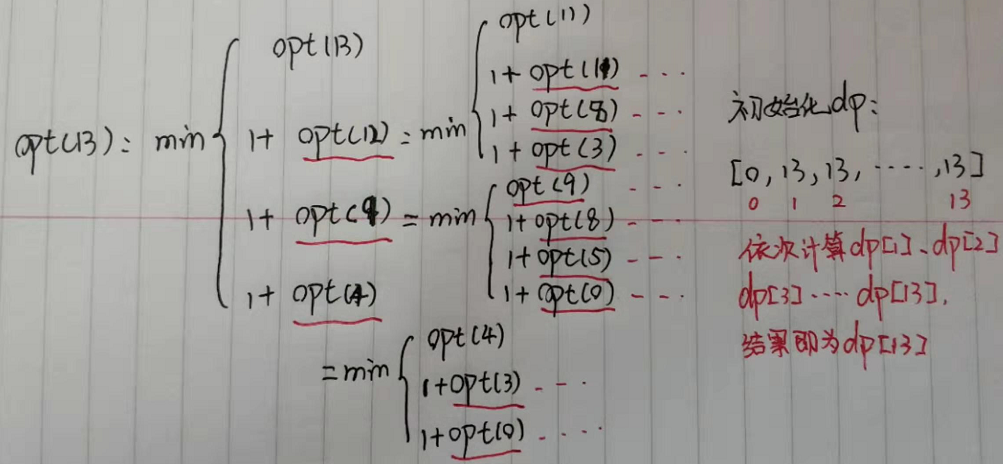 opt(13): min
opt(13)
1+ opt(12) = min
1+ opt(9) = min
1+ opt(4)
opt(12)
1+ opt(11) ...
1+ opt(8) ...
1+ opt(3) ...
opt(9) ...
1+opt(8) ...
1+opt(5) ...
1+opt(0) ...
=min
opt(4)
1+opt(3) ...
1+opt(0) ....
初始化dp:
[0,13,13,.....,13]
0 1 2 13
依次计算dp[1]、dp[2]
dp[3]....dp[13],
结果即为dp[13]